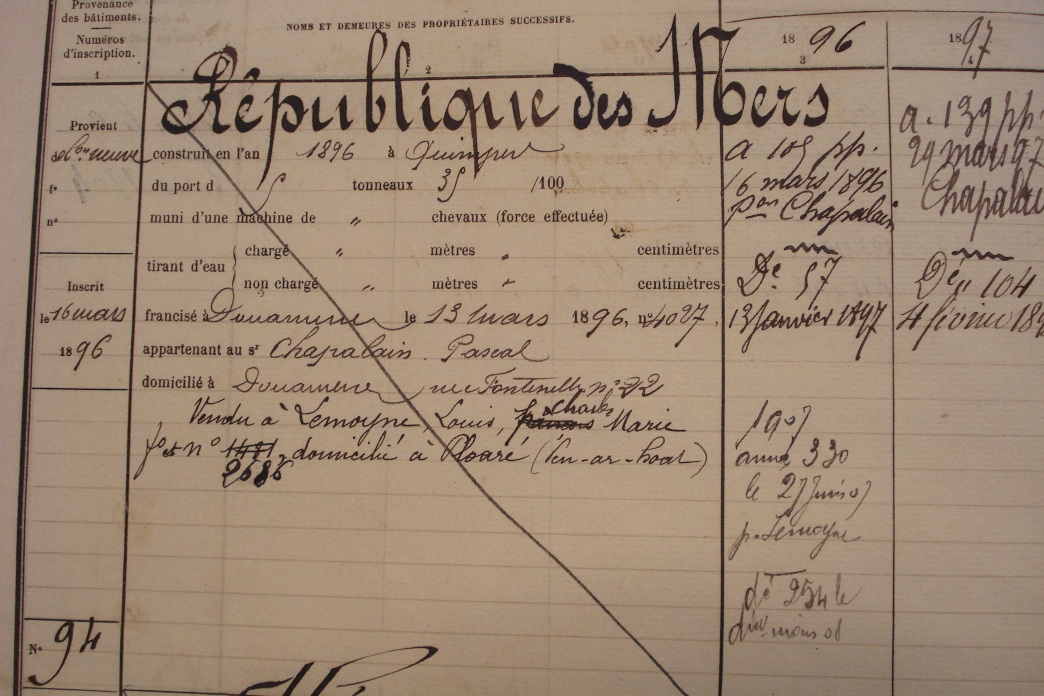 Provenance
des bâtiments.
Numéros
d'inscription.
1
NOMS ET DEMEURES DES PROPRIÉTAIRES SUCCESSIFS.
2
1896
3
1897
4
République des Mers
Provient
de neuve
fº
nº
construit en l'an 1896 à Quimper
du port d tonneaux 35 /100
muni d'une machine de " chevaux (force effectuée)
tirant d'eau
chargé " mètres " centimètres
non chargé " mètres " centimètres
Inscrit
le 16 mars
1896
francisé à Douarnenez le 13 mars 1896, nº 4087.
appartenant au sr Chapalain Pascal
domicilié à Douarnenez rue Fontenelle nº 22
Vendu à Lemoyne, Louis, Charles Marie
fº et nº 1481, domicilié à Ploaré (Ven-ar-hoat)
2686
a 109 pp.
16 mars 1896
pon Chapalain
Dé 57
13 janvier 1897
1907
armé 330
le 27 Juin 07
p. Lemoyne
dé 254 le
a. 139 pp.
29 mars 97
Chapalain
Dé 104
4 février 189
Nº 94